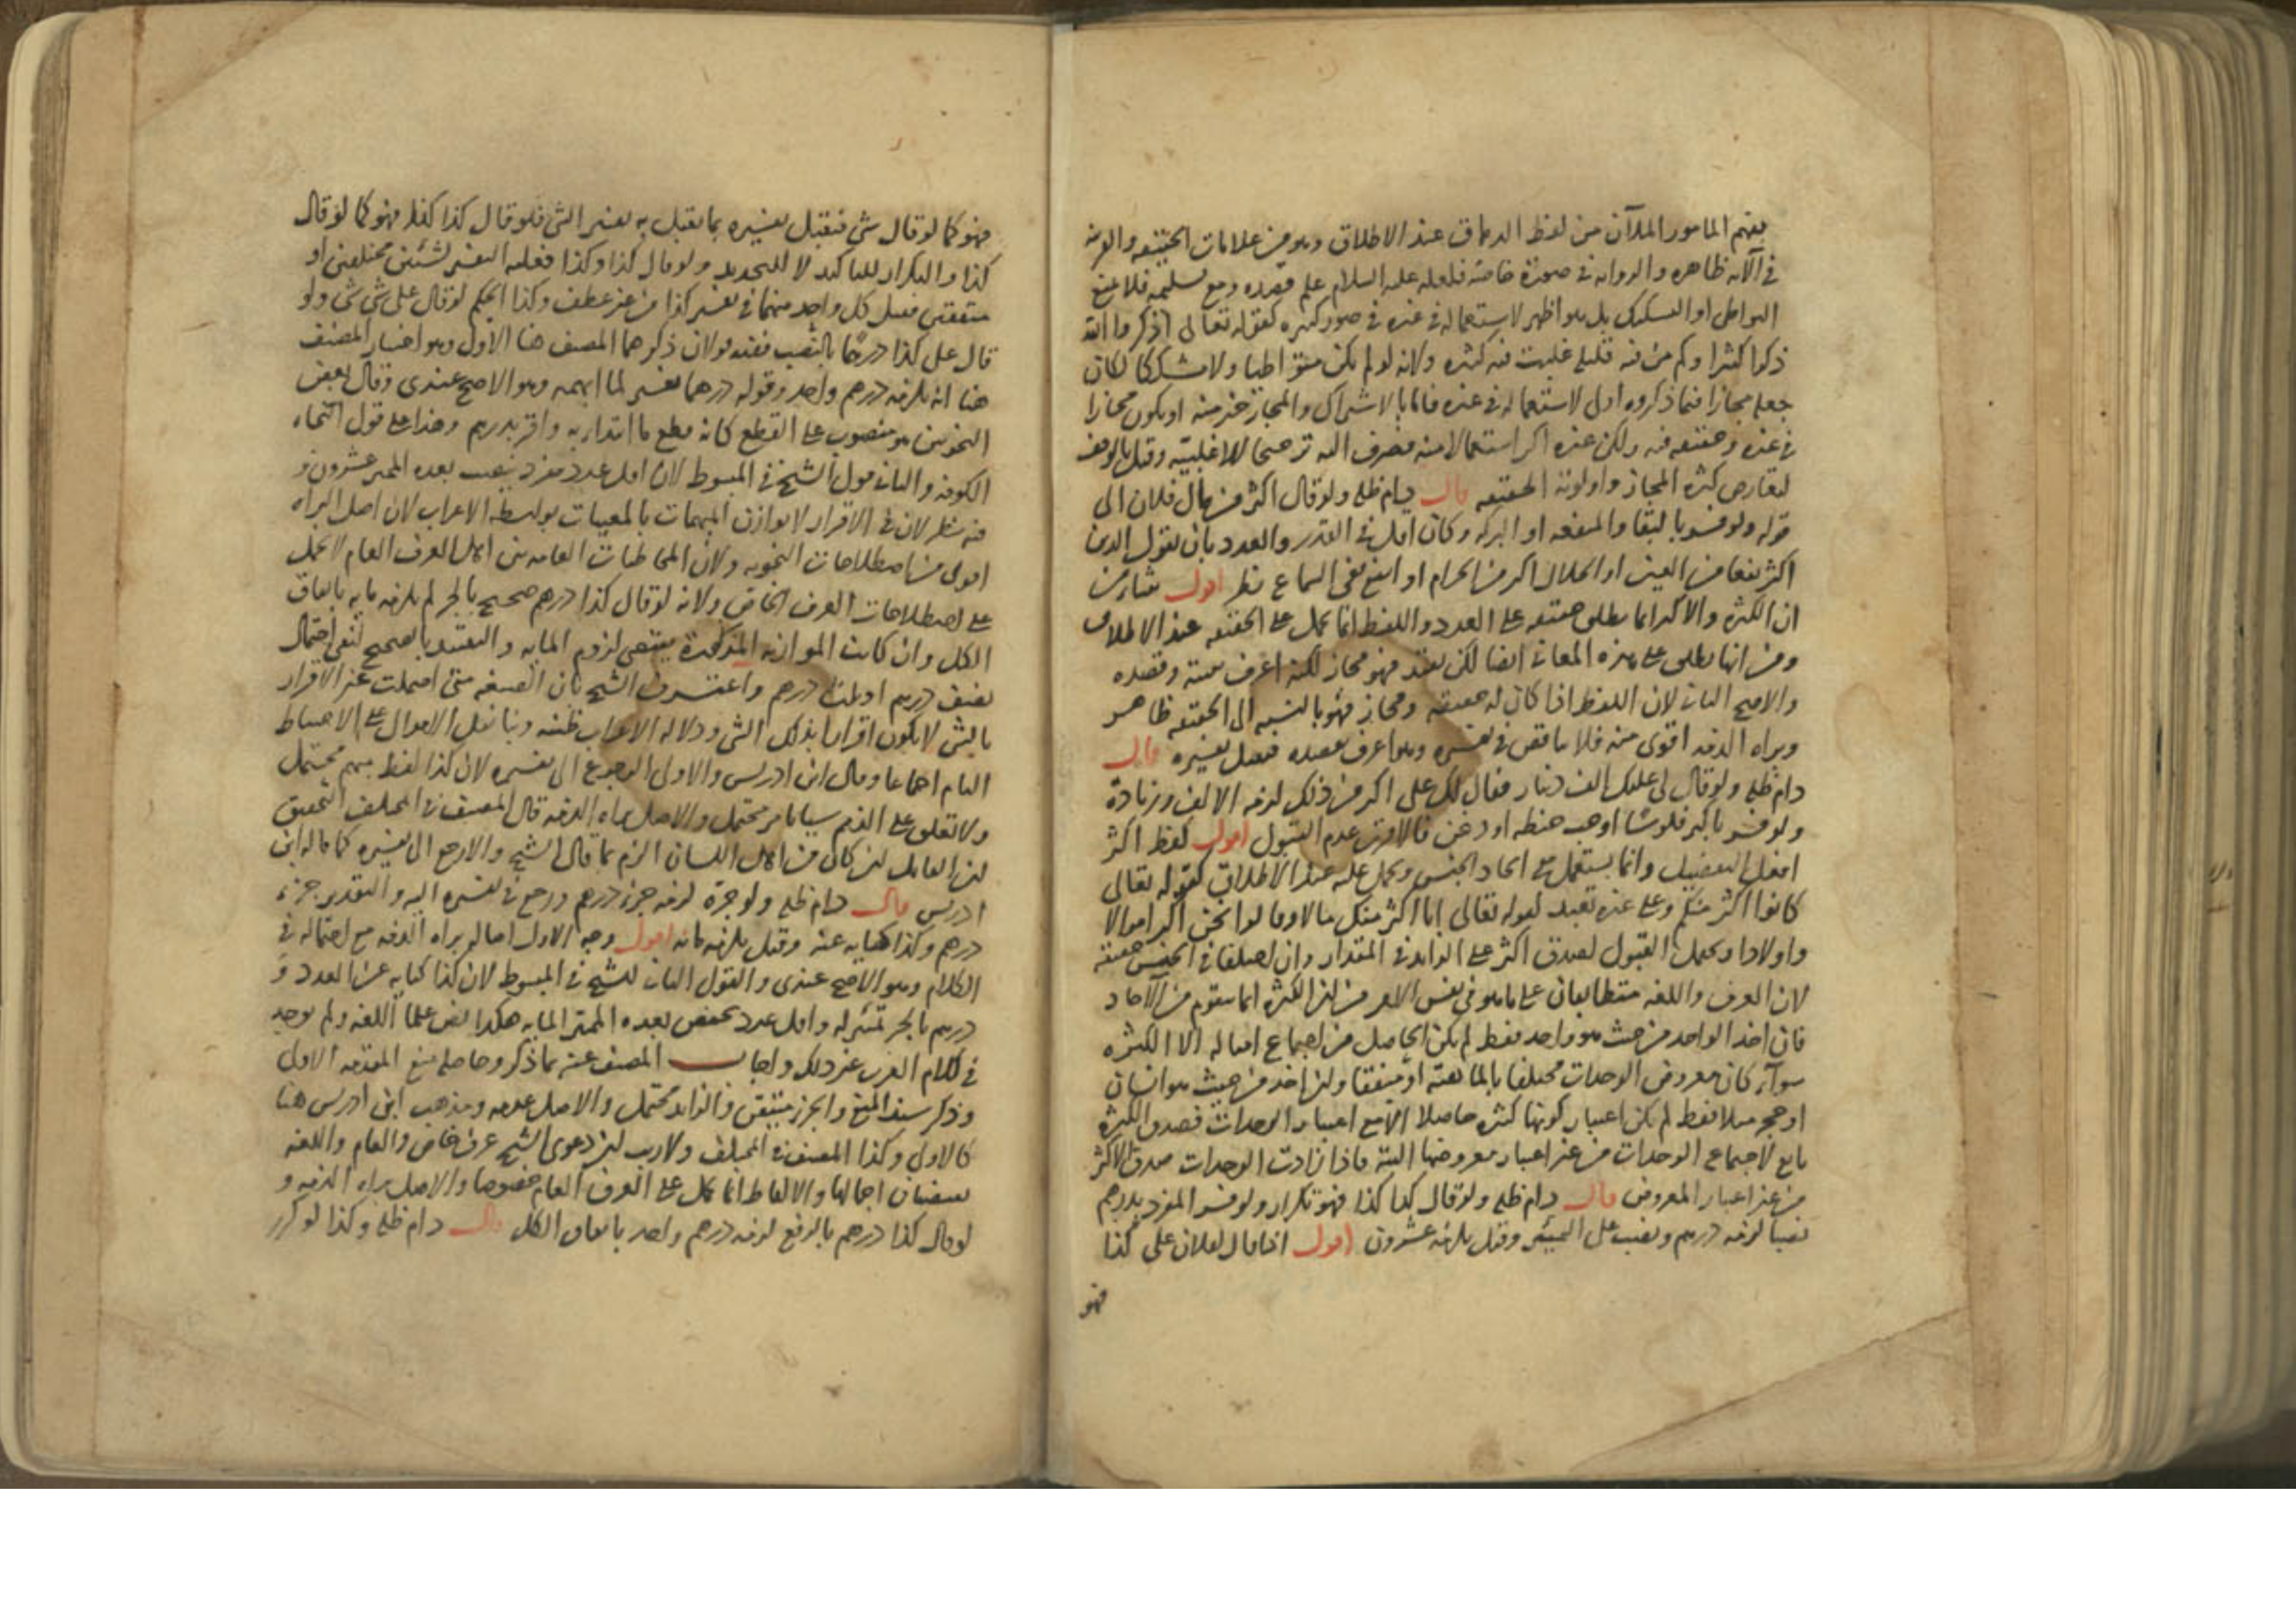 يفهم المأمور الملآن من لفظ الدهاق عند الاطلاق وهو من علامات الحقيقة
في الآية ظاهره والرواية في صورة خاصة فلعله عليه السلام علم قصده ومع تسليمه فلا يمنع
التواطي او التشكيك بل هو اظهر لاستعماله في غيره في صور كثيره كقوله تعالى اذكروا الله
ذكرا كثيرا وكم من فئة قليلة غلبت فئة كثيرة ولانه لو لم يكن متواطيا ولا مشككا لكان
جعله مجازا فيما ذكروه اولى لاستعماله في غيره فاما بالاشتراك والمجاز خير منه او يكون مجازا
في غيره وحقيقة فيه ولكن غيره اكثر استعمالا منه فصرف اليه ترجيحا للاغلبية وقيل بالوقف
لتعارض كثرة المجاز واولوية الحقيقة قال دام ظله ولو قال اكثر من مال فلان الى
قوله ولو فسر بالبقاء والمنفعه او البركه وكان اقل في القدر والعدد بان يقول الدين
اكثر نفعا من العين او الحلال اكثر من الحرام او انفع ففي السماع نظر اقول ينشا من
ان الكثرة والاكثر انما يطلق حقيقة على العدد واللفظ انما يحمل على الحقيقة عند الاطلاق
ومن انها يطلق على هذه المعاني ايضا لكن يفتقد فهو مجاز لكنه اعرف بنيته وقصده
والاصح الثاني لان اللفظ اذا كان له حقيقة ومجاز فهو بالنسبه الى الحقيقة ظاهر
وبراه الذمه اقوى منه فلا يناقض في تفسيره وهو اعرف بقصده فيقبل تفسيره قال
دام ظله ولو قال لي عليك الف دينار فقال لك على اكثر من ذلك لزمه الالف وزيادة
ولو فسر باكثر فلوسا او حب حنطه او دخن فالاقرب عدم القبول اقول لفظ اكثر
افعل التفضيل وانما يستعمل مع اتحاد الجنس ويحمل عليه عند الاطلاق كقوله تعالى
كانوا اكثر منكم وعلى غيره بقيد كقوله تعالى انا اكثر منك مالا وقالوا نحن اكثر اموالا
واولادا ويحتمل القبول لصدق اكثر على الزايد في المقدار وان اختلفا في الجنس حقيقة
لان العرف واللغه متطابقان على ما هو في نفس الامر من ان الكثرة انما يتقوم من الآحاد
فان اخذ الواحد من حيث هو واحد فقط لم يكن الحاصل من اجتماع امثاله الا الكثره
سوآء كان معروض الوحدات مختلفا بالماهيه او متفقا وان اخذ من حيث هو انسان
او حجر مثلا فقط لم يكن اعتبار كونها كثره حاصلا الا مع اعتبار الوحدات فصدق الكثرة
تابع لاجتماع الوحدات من غير اعتبار معروضها البته فاذا زادت الوحدات صدق الاكثر
من غير اعتبار المعروض قال دام ظله ولو قال كذا كذا فهو تكرار ولو فسر المفرد بدرهم
نصبا لزمه درهم ونصب على التمييز وقيل يلزمه عشرون اقول اذا قال لفلان على كذا
فهو
فهو كما لو قال شي فيقبل تفسيره بما يقبل به تفسير الشي فلو قال كذا كذا فهو كما لو قال
كذا والتكرار للتاكيد لا للتجديد ولو قال كذا وكذا فعليه التفسير لشيئين مختلفين او
متفقين فيقبل كل واحد منهما في تفسير كذا من غير عطف وكذا الحكم لو قال على شي شي ولو
قال على كذا درهما بالنصب ففيه قولان ذكرهما المصنف هنا الاول وهو اختيار المصنف
هنا انه يلزمه درهم واحد وقوله درهما تفسير لما ابهمه وهو الاصح عندى وقال بعض
النحويين هو منصوب على القطع كانه قطع ما ابتدا به واقر بدرهم وهذا على قول النحاه
الكوفيه والثاني قول الشيخ في المبسوط لان اقل عدد مفرد ينصب بعده المميز عشرون و
فيه نظر لان في الاقرار لا يوازن المبهمات بالمبينات بواسطة الاعراب لان اصل البراه
اقوى من اصطلاحات النحويه ولان المخاطبات العامه بين اهل العرف العام لا يحمل
على اصطلاحات العرف الخاص ولانه لو قال كذا درهم صحيح بالجر لم يلزمه مايه باتفاق
الكل وان كانت الموازنه المذكورة يقتضى لزوم المايه والتقييد بالصحيح لنفي احتمال
نصف درهم او ثلث درهم واعترف الشيخ بان الصيغه متى احتملت غير الاقرار
بالشي لا يكون اقرارا بذلك الشي ودلاله الاعراب ظنيه وبنا نقل الاموال على الاحتياط
التام اجماعا وقال ابن ادريس والاولى الرجوع الى تفسيره لان كذا لفظ مبهم محتمل
ولا تعلق على الذمم شيا بامر محتمل والاصل براه الذمه قال المصنف في المختلف التحقيق
ان القايل ان كان من اهل اللسان الزم بما قال الشيخ والا رجع الى تفسيره كما قاله ابن
ادريس قال دام ظله ولو جرة لزمه جزء درهم ورجع في تفسيره اليه والتقدير جزء
درهم وكذا كنايه عنه وقيل يلزمه مايه اقول وجه الاول اصاله براه الذمه مع احتماله في
الكلام وهو الاصح عندى والقول الثاني للشيخ في المبسوط لان كذا كنايه عن العدد و
درهم بالجر تمييز له واقل عدد يخفض بعده المميز المايه هكذا نص علما اللغه ولم يوجد
في كلام العرب غير ذلك واجاب المصنف عنه بما ذكر وحاصله منع المقدمه الاولى
وذكر سند المنع والجزء متيقن والزايد محتمل والاصل عدمه ومذهب ابن ادريس هنا
كالاول وكذا المصنف في المختلف ولا ريب ان دعوى الشيخ عرف خاص والعام واللغه
اجمالها والالفاظ انما تحمل على العرف العام خصوصا والاصل براه الذمه و
لو قال كذا درهم بالرفع لزمه درهم واحد باتفاق الكل قال دام ظله وكذا لو كرر